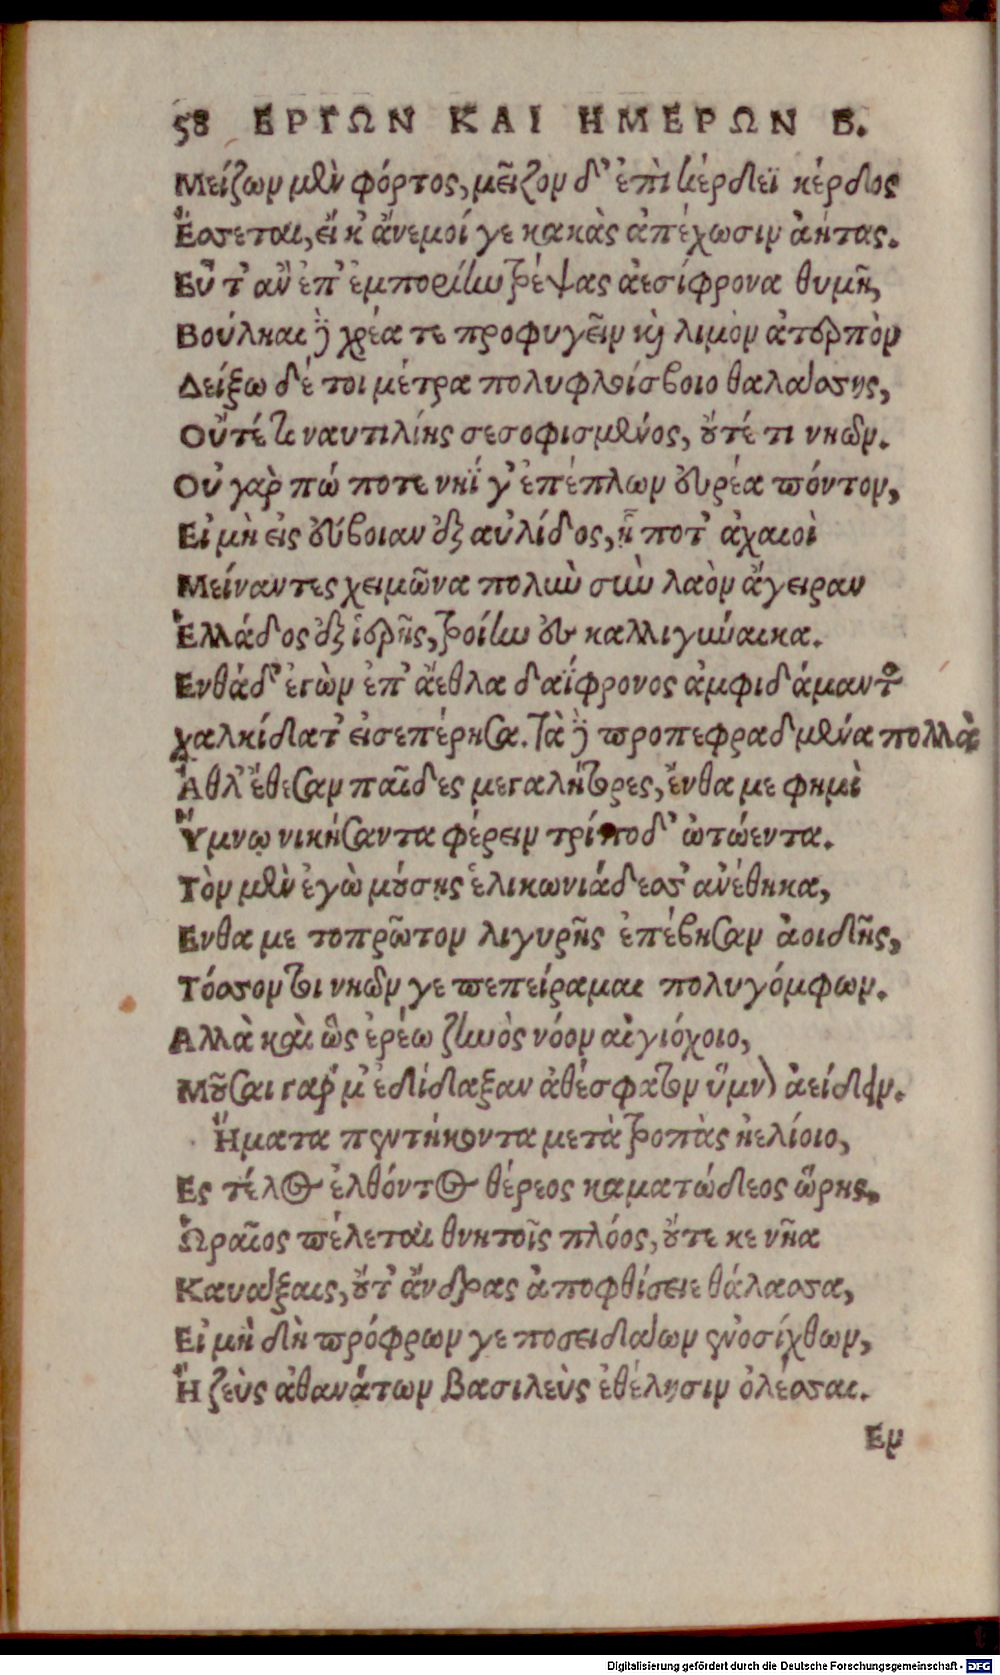 58 ΕΡΓΩΝ ΚΑΙ ΗΜΕΡΩΝ Β.
Μείζων μὲν φόρτος, μεῖζον δ' ἐπὶ κέρδεϊ κέρδος
Ἔσσεται, εἴ κ' ἄνεμοί γε κακὰς ἀπέχωσιν ἀήτας.
Εὖτ' ἂν ἐπ' ἐμπορίην τρέψας ἀεσίφρονα θυμὸν,
Βούληαι δὲ χρέα τε προφυγεῖν καὶ λιμὸν ἀτερπὸν
Δείξω δέ τοι μέτρα πολυφλοίσβοιο θαλάσσης,
Οὔτέ τι ναυτιλίης σεσοφισμένος, οὔτέ τι νηῶν.
Οὐ γὰρ πώ ποτε νηΐ γ' ἐπέπλων εὐρέα πόντον,
Εἰ μὴ εἰς εὔβοιαν ἐξ αὐλίδος, ᾗ ποτ' ἀχαιοὶ
Μείναντες χειμῶνα πολὺν σὺν λαὸν ἄγειραν
Ἑλλάδος ἐξ ἱερῆς, τροίην ἐς καλλιγύναικα.
Ενθάδ' ἐγὼν ἐπ' ἄεθλα δαΐφρονος ἀμφιδάμαντος
χαλκίδα τ' εἰσεπέρησα. Τὰ δὲ προπεφραδμένα πολλὰ
Ἀθλ' ἔθεσαν παῖδες μεγαλήτορες, ἔνθα με φημὶ
Ὕμνῳ νικήσαντα φέρειν τρίποδ' ὠτώεντα.
Τὸν μὲν ἐγὼ μούσῃς ἑλικωνιάδεσσ' ἀνέθηκα,
Ενθα με τοπρῶτον λιγυρῆς ἐπέβησαν ἀοιδῆς,
Τόσσον τοι νηῶν γε πεπείραμαι πολυγόμφων.
Αλλὰ καὶ ὣς ἐρέω ζηνὸς νόον αἰγιόχοιο,
Μοῦσαι γάρ μ' ἐδίδαξαν ἀθέσφατον ὕμνον ἀείδειν.
Ἤματα πεντήκοντα μετὰ τροπὰς ἠελίοιο,
Ες τέλος ἐλθόντος θέρεος καματώδεος ὥρης,
Ὡραῖος πέλεται θνητοῖς πλόος, οὔτε κε νῆα
Καυάξαις, οὔτ' ἄνδρας ἀποφθίσειε θάλασσα,
Εἰ μὴ δὴ πρόφρων γε ποσειδάων ἐνοσίχθων,
Ἢ ζεὺς ἀθανάτων βασιλεὺς ἐθέλησιν ὀλέσσαι.
Εν
Digitalisierung gefördert durch die Deutsche Forschungsgemeinschaft - DFG